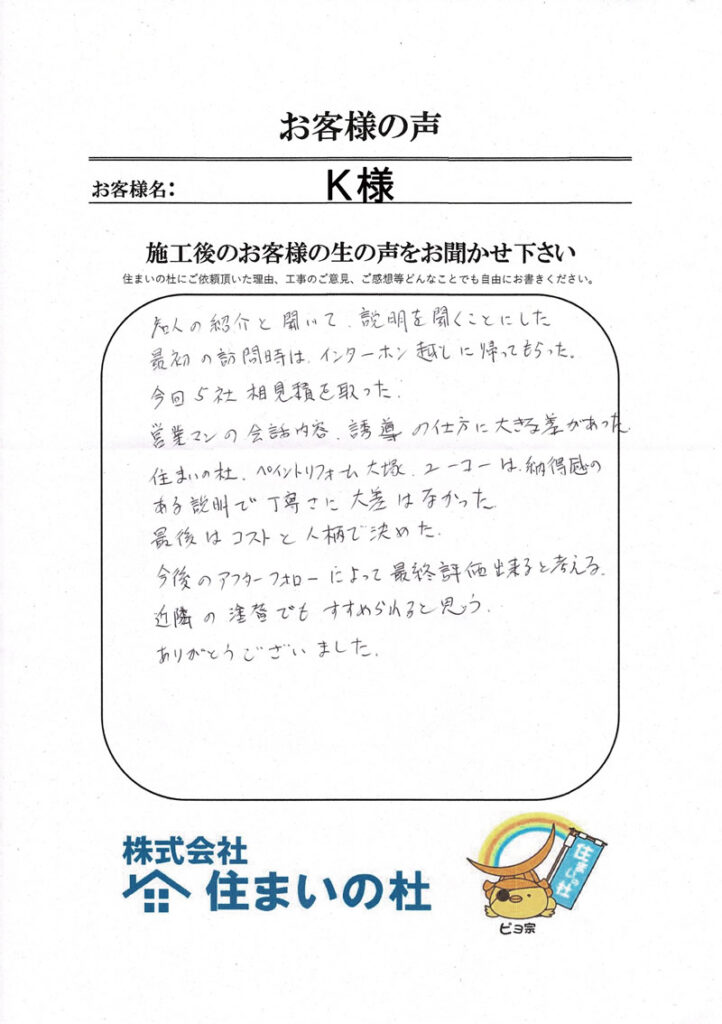 お客様の声
お客様名: K様
施工後のお客様の生の声をお聞かせ下さい
住まいの杜にご依頼頂いた理由、工事のご意見、ご感想等どんなことでも自由にお書きください。
知人の紹介と聞いて、説明を聞くことにした
最初の訪問時は、インターホン越しに帰ってもらった。
今回5社相見積を取った。
営業マンの会話内容、誘導の仕方に大きな差があった。
住まいの杜、ペイントリフォーム大塚、ユーコーは、納得感の
ある説明で丁寧さに大差はなかった
最後はコストと人柄で決めた。
今後のアフターフォローによって最終評価出来ると考える。
近隣の塗替でもすすめられると思う。
ありがとうございました。
株式会社
住まいの杜
住まいの杜
ピヨ宗